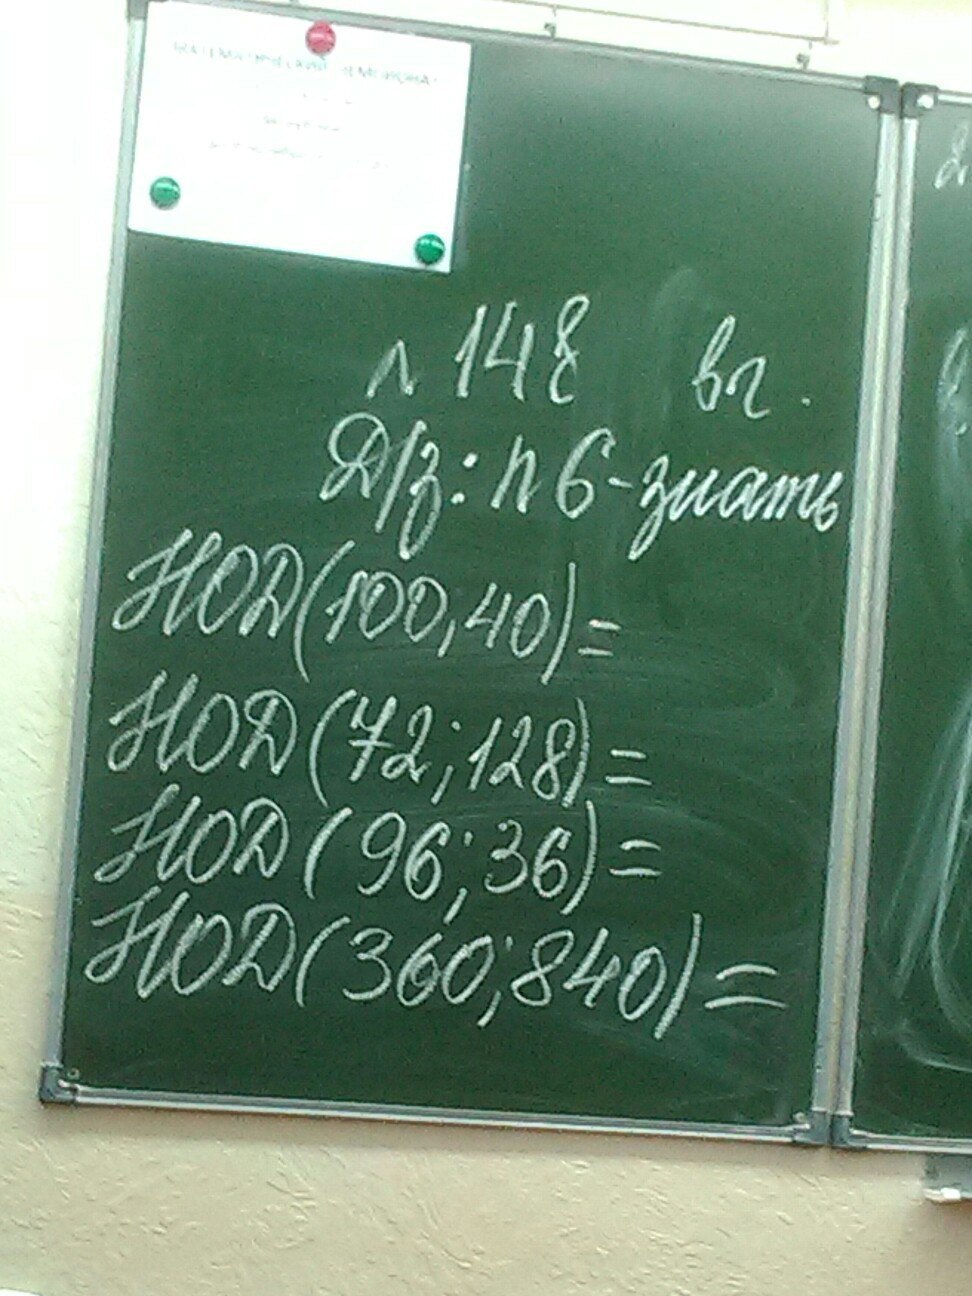 148 вг.
Д/з: п 6 - знать
НОД(100,40)=
НОД(72;128)=
НОД(96;36)=
НОД(360;840)=